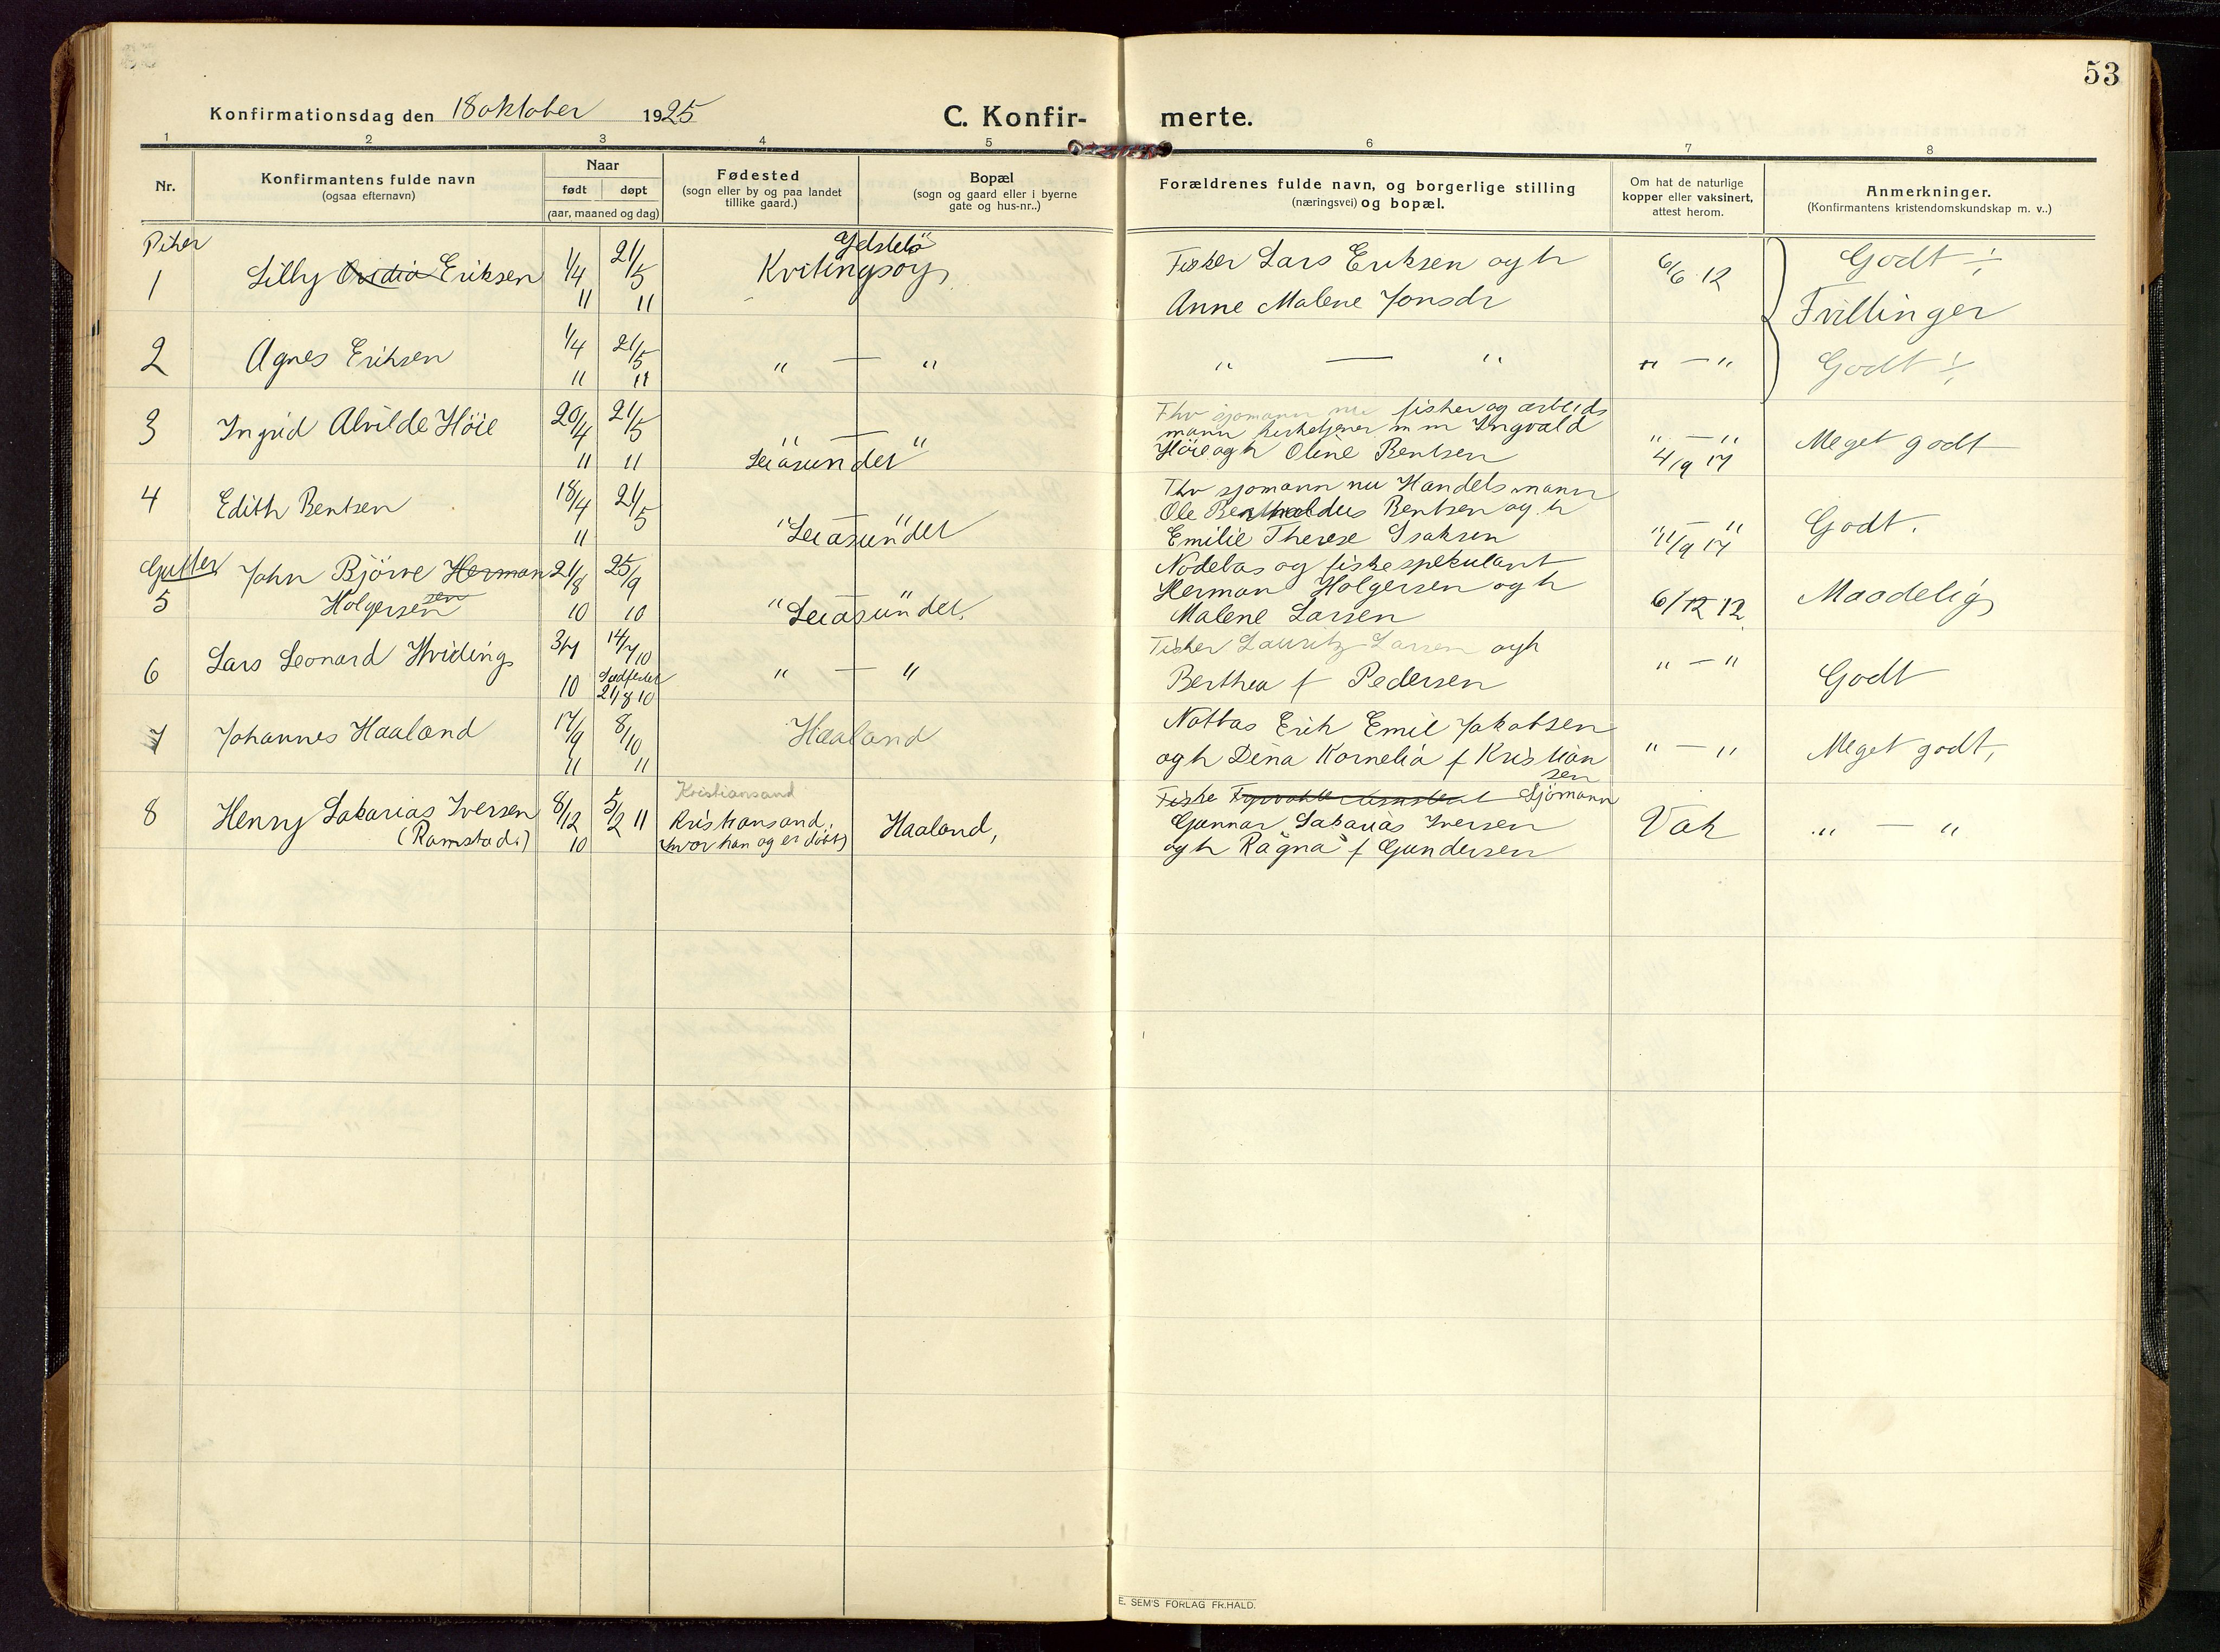 53
Konfirmationsdag den 18 oktober 1925
C. Konfir-
merte.
1 2 3 4 5 6 7 8
Nr.
Konfirmantens fulde navn
(ogsaa efternavn)
Naar
født døpt
(aar, maaned og dag)
Fødested
(sogn eller by og paa landet
tillike gaard.)
Bopæl
(sogn og gaard eller i byerne
gate og hus-nr..)
Forældrenes fulde navn, og borgerlige stilling
(næringsvei) og bopæl.
Om hat de naturlige
kopper eller vaksinert,
attest herom.
Anmerkninger.
(Konfirmantens kristendomskundskap m. v..)
Piker
1 Lilly Ovidia Eriksen 1/4 11 21/5 11
Ydstebö
Kvitingsöy
Fisker Lars Eriksen og h
Anne Malene Jonsdr
6/6 12
Godt ÷
Tvillinger
2 Agnes Eriksen 1/4 11 21/5 11 " — " " — " " — " Godt ÷
3 Ingrid Alvilde Höie 20/4 11 21/5 11
" — "
Leiasundet
Fhv sjomann nu fisker og arbeids
mann kirketjener m m Ingvald
Höie og h Oline Bentsen
" — "
4/9 17
Meget godt
4 Edith Bentsen 18/4 11 21/5
" — "
Leiasundet
Fhv sjomann nu Handelsmann
Ole Berthaldus Bentsen og h
Emilie Therese Isaksen
" — "
11/9 17
Godt.
Gutter
5 John Björve Herman
sen
Holgersen
21/8 10 25/9 10
" — "
Leiasundet
Nodebas og fiskespekulant
Herman Holgersen og h
Malene Larsen
6/12 12
Maadelig
6 Lars Leonard Hviding 3/7 10 14/7 10
Stadfestet
21/8 10
" — "
Fisker Lauritz Larsen og h
Berthea f Pedersen
" — "
Godt
7 Johannes Haaland 17/9 11 8/10 11 Haaland
Notbas Erik Emil Jakobsen
og h Dina Kornelia f Kristian
sen
" — "
Meget godt,
8 Henry Sakarias Iversen
(Ramstad.)
8/12 10 5/2 11
Kristiansand
Kristiansand,
hvor han og er döbt)
Haaland,
Fiske Sjömann
Gunnar Sakarias Iversen
og h Ragna f Gundersen
Vak
" — "
E. SEM'S FORLAG FR.HALD.